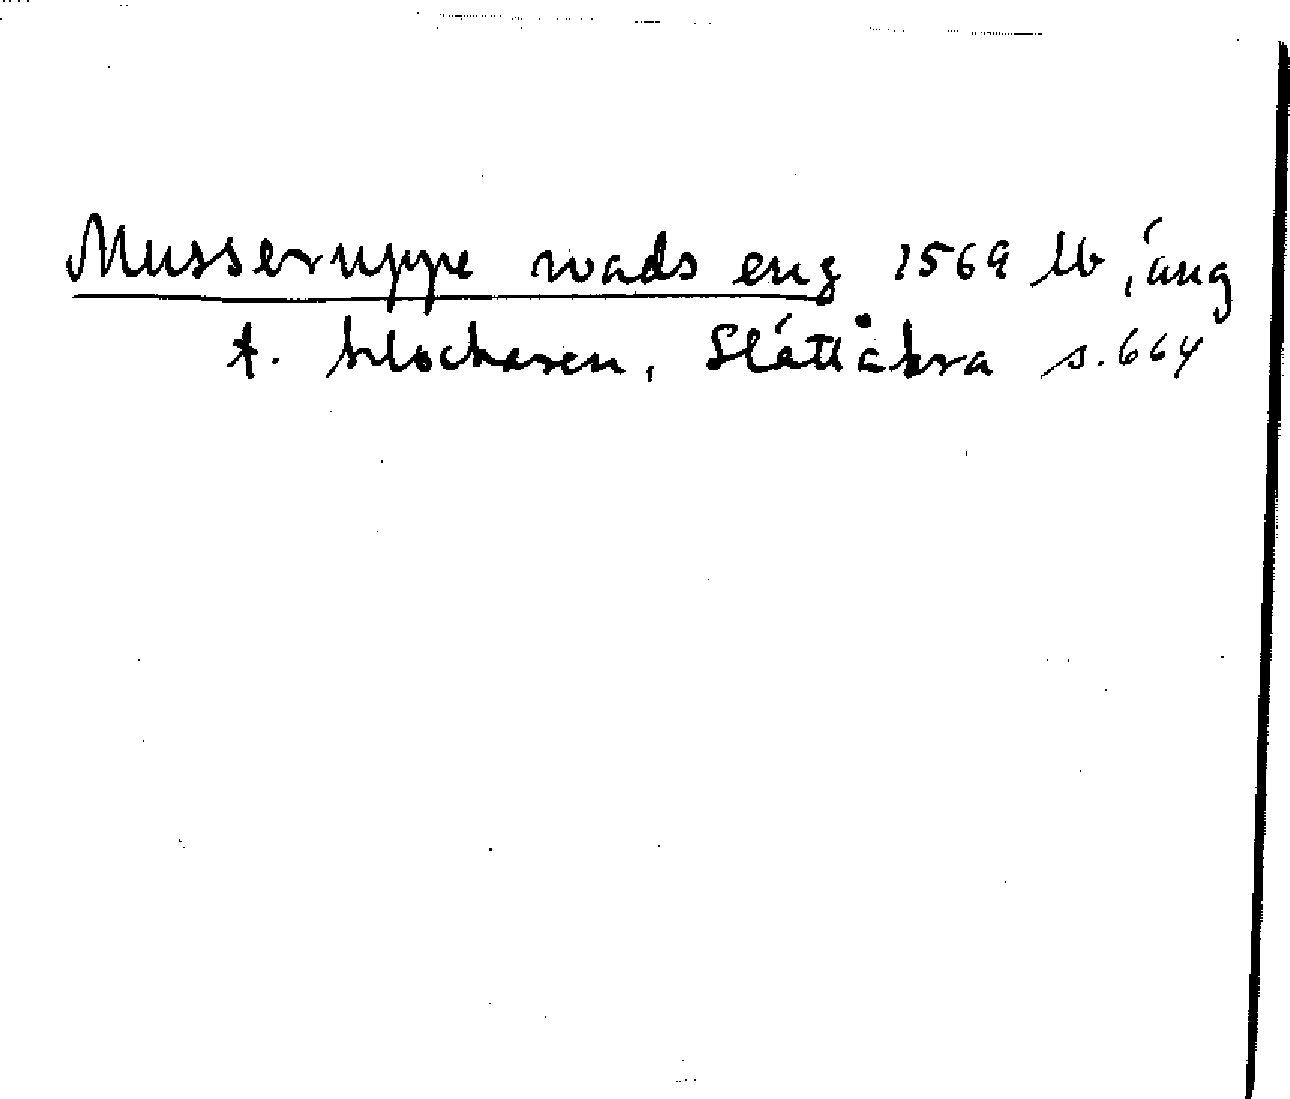 Musseruppe wads eng 1569 lb, äng
t. klockaren, Slättåkra s. 664